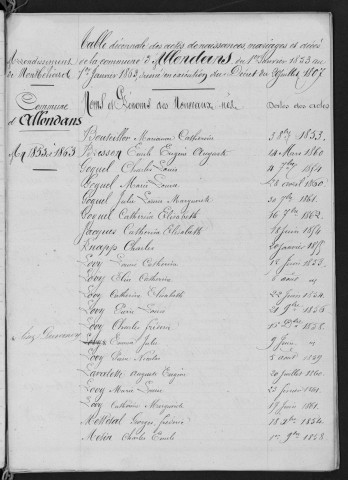 Table décennale des actes de naissances, mariages et décès
Arrondissement de la commune d'Allondans du 1er Janvier 1853 au
de Montbéliard 1er Janvier 1863, en exécution du Décret du 20 Juillet 1807
Commune
d'Allondans
Noms et Prénoms des Nouveaux-nés Dates des actes
Bouteiller Marianne Catherine 3 1853.
An 1853 à 1863 Besson Emile Eugène Auguste 24 Mars 1860
Goguel Charles Louis 4 7bre 1854
Goguel Marie Louise 26 avril 1860.
Goguel Julie Louise Marguerite 20 7bre 1861.
Goguel Catherine Elisabeth 16 7bre 1862.
Jacques Catherine Elisabeth 18 Juin 1854
Knapps Charles 20 Janvier 1855
Lovy Louise Catherine 15 Juin 1853.
Lovy Elise Catherine 6 août
Lovy Catherine Elisabeth 22 Juin 1854.
Lovy Pierre Louis 20 9bre 1856
Lovy Charles Frédéric 15 Xbre 1858.
Emma Julie 9 Juin
Lovy Pierre Nicolas 5 août 1859
Lavalette Auguste Eugène 20 Juillet 1860.
Lovy Marie Louise 22 février 1861.
Lovy Catherine Marguerite 18 Juin 1861.
Mettétal Georges Frédéric 18 1854.
Charles Emile 1er 9bre 1858.